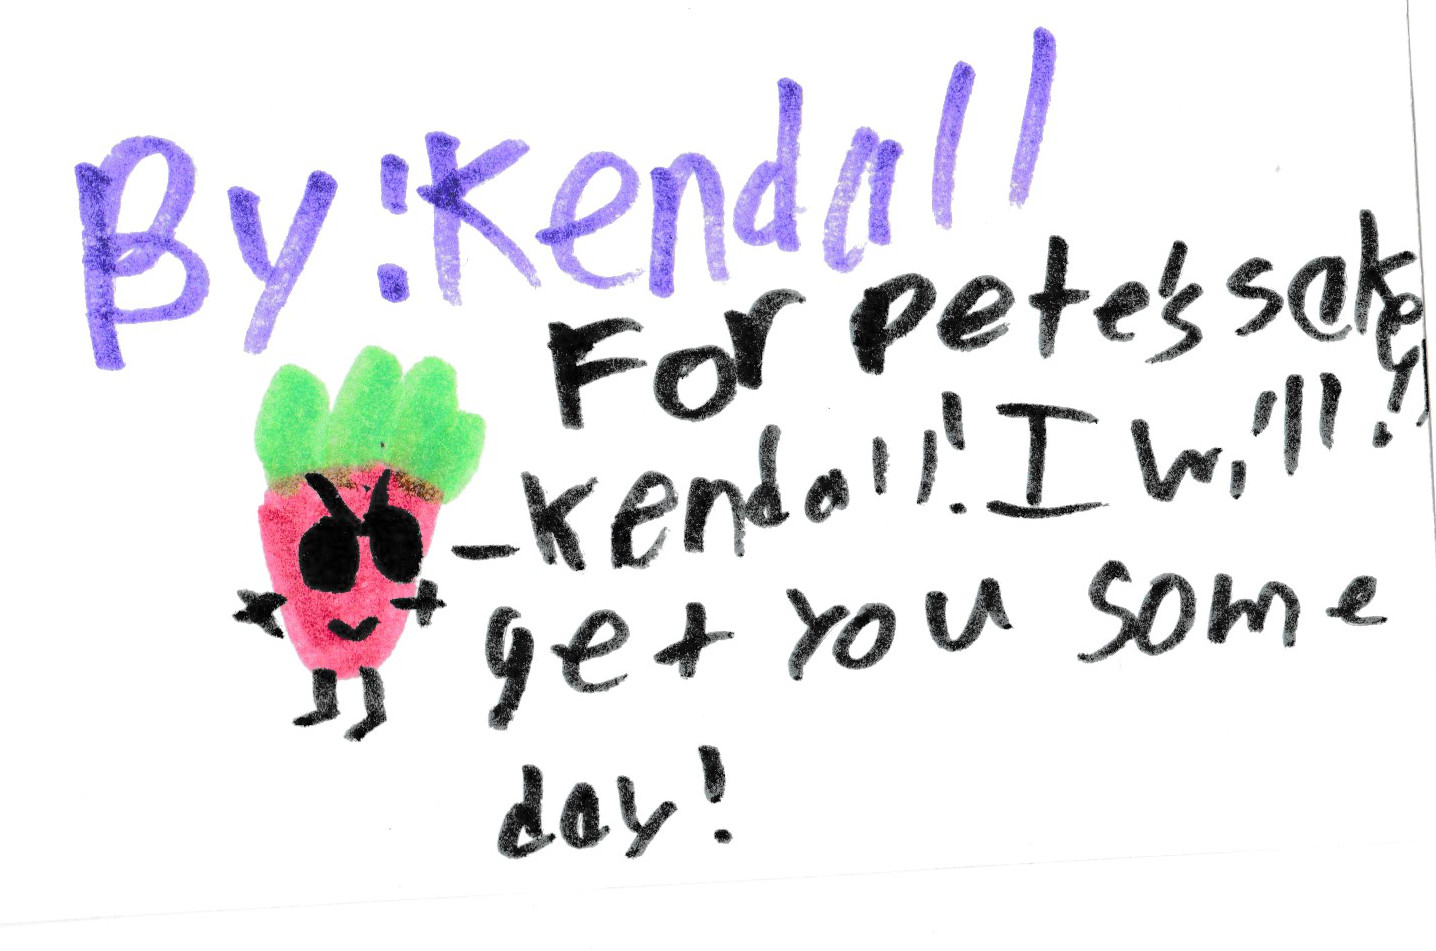 By: Kendall
For pete's sake,
-Kendall! I will!!
get you some
day!